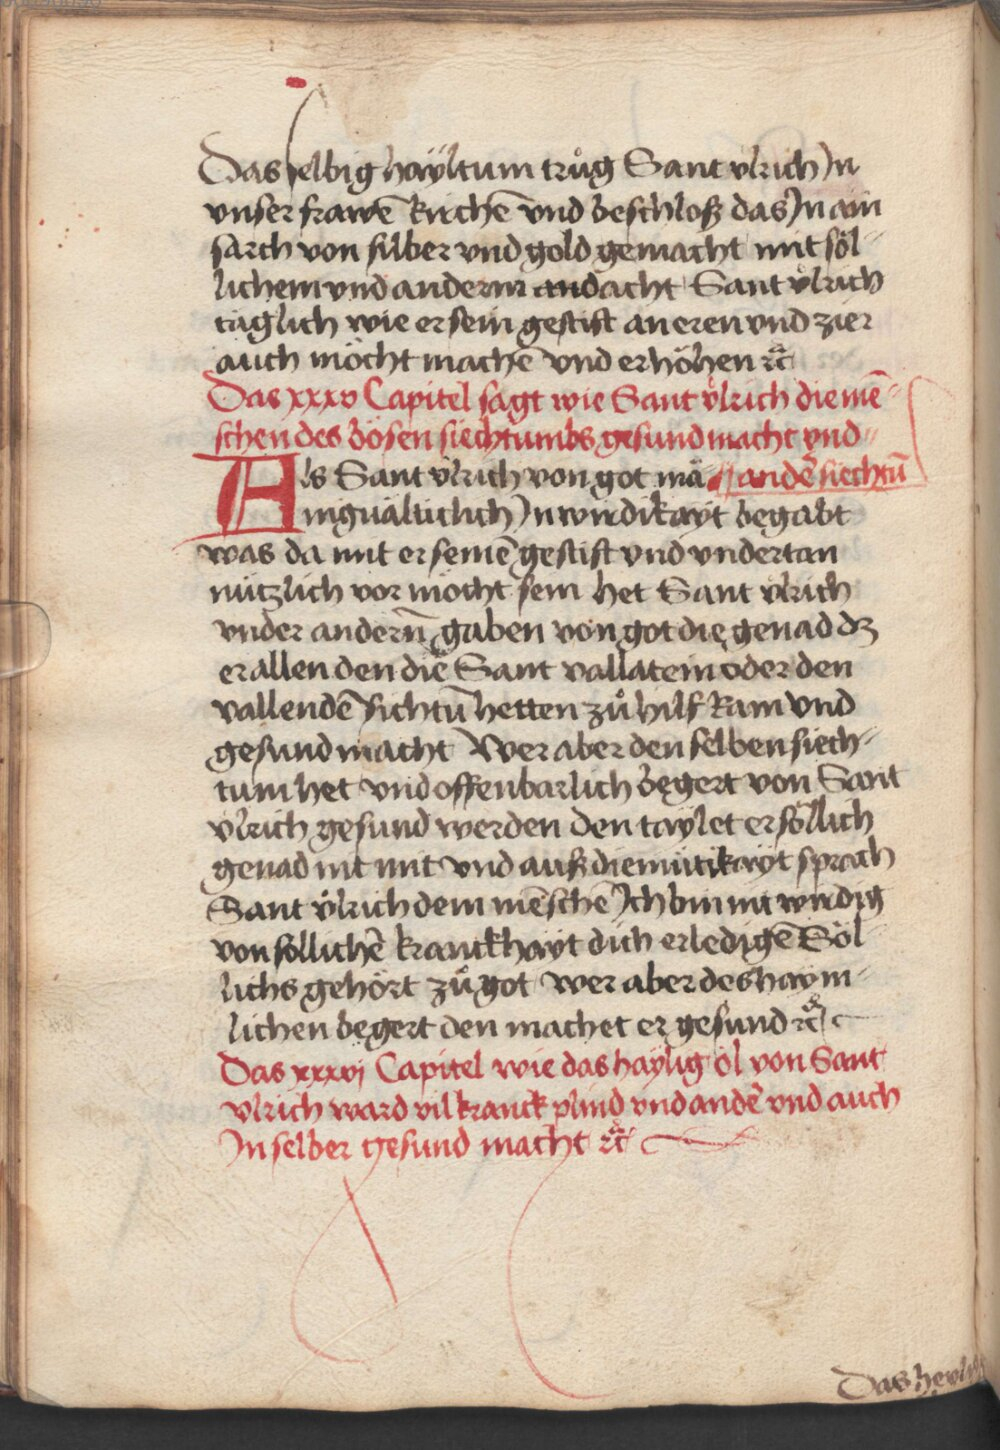 Das selbig haÿltum trůg Sant vlrich Jn
vnser frawē kirchē vnd beschloß das Jn ain
sarch von silber vnd gold gemacht mit söl-
lichem vnd anderm andacht Sant vͦlrich
täglich wie er sein gestift an eren vnd zier
auch möcht machē vnd erhöhen ꝛc̄
Das xxxv Capitel sagt wie Sant vͦlrich die mē-
schen des bösen siechtumbs gesund macht vnd
Als Sant vͦlrich von got mä- andē siechtū
nigualticlich Jn wirdikayt begabt
was da mit er seinē gestift vnd vndertan
nützlich vor möcht sein het Sant vlrich
vnder andern̄ gaben von got die genad dz
er allen den die Sant vallatein oder den
vallendē sichtū hetten zů hilf kam vnd
gesund macht Wer aber den selben siech-
tum het vnd offenbarlich begert von Sant
vlrich gesund werden den taylet er söllich
genad nit mit vnd auß diemütikayt sprach
Sant vͦlrich dem mēschē Jch bin nit wirdig
von söllichē kranckhayt dich erledigē Söl-
lichs gehört zů got wer aber des haym-
lichen begert den machet er gesund ꝛc̄
Das xxxvj Capitel wie das haÿlig öl von Sant
vlrich ward vil kranck plind vnd andē vnd auch
Jn selber gesund macht ꝛc̄